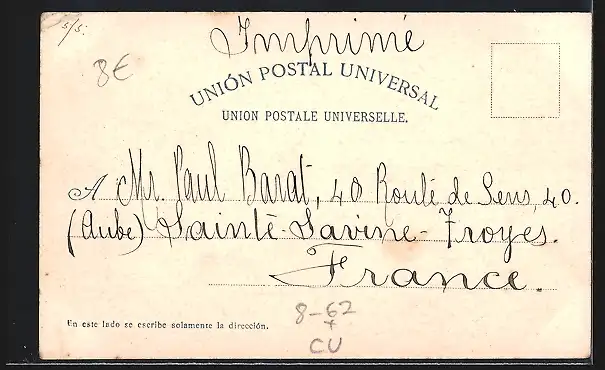 5/5.
Imprimé
8€
UNIÓN POSTAL UNIVERSAL
UNION POSTALE UNIVERSELLE.
A Mr. Paul Barat, 40 Roulé de Sens, 40.
(Aube) Sainte-Savine-Troyes.
France.
8-62
+
CU
En este lado se escribe solamente la dirección.